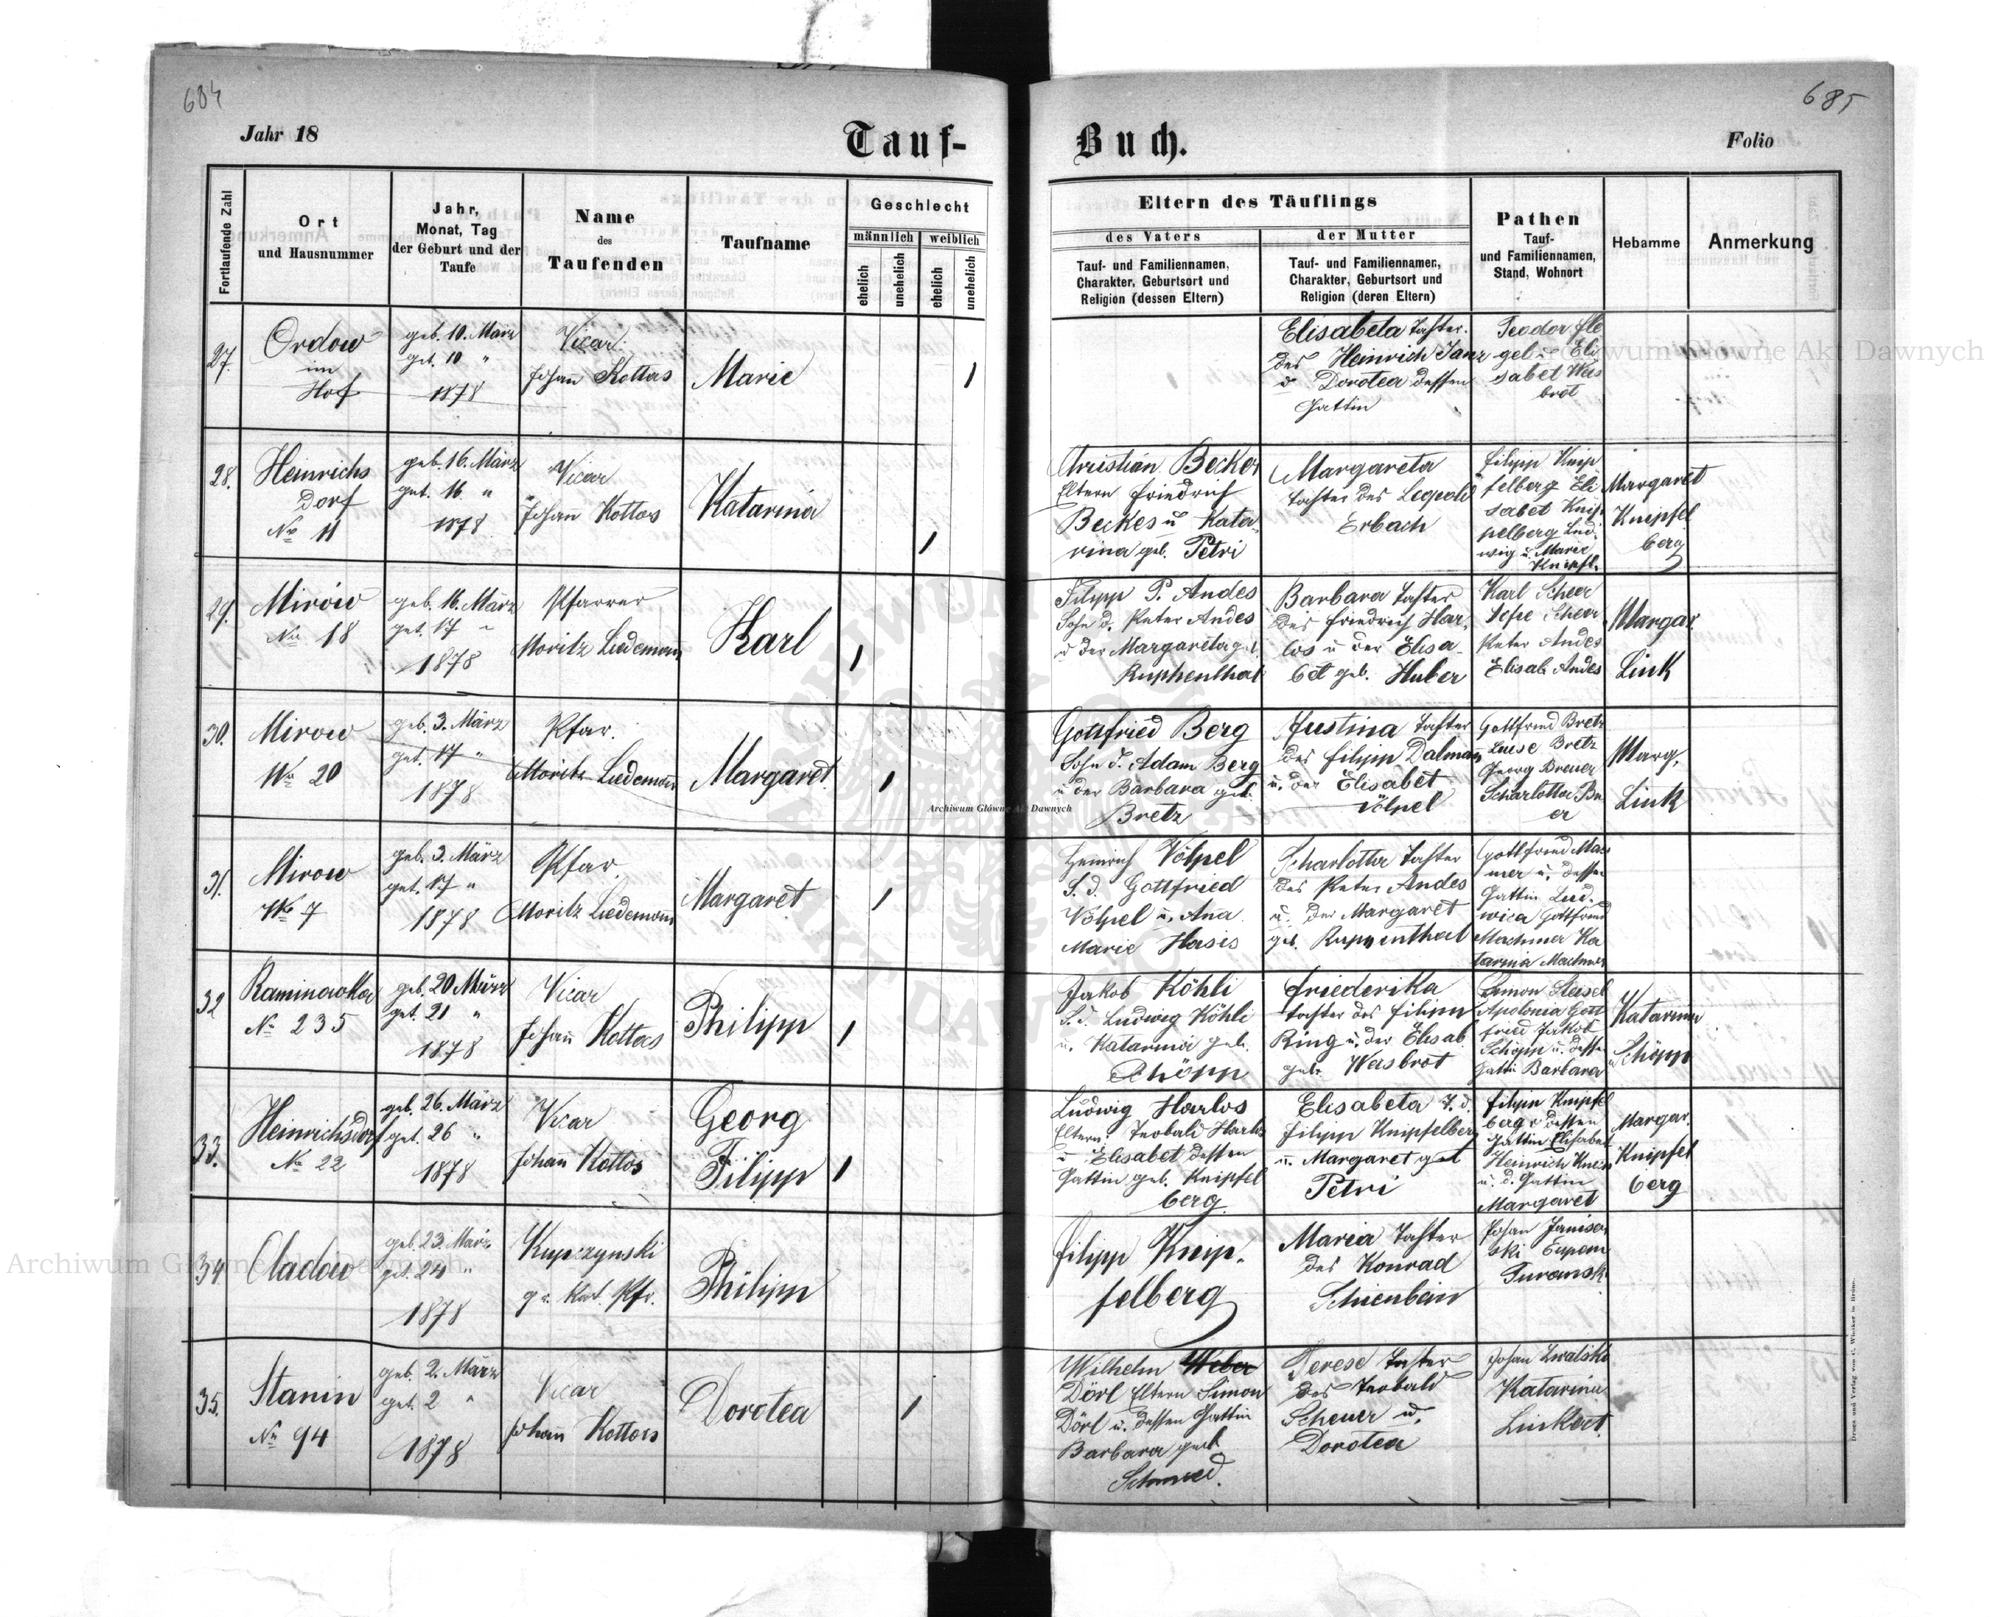 684
685
Jahr 18
Tauf-
Buch.
Folio
Fortlaufende Zahl
Ort
und Hausnummer
Jahr,
Monat, Tag
der Geburt und der
Taufe
Name
des
Taufenden
Taufname
Geschlecht
männlich
weiblich
ehelich
unehelich
ehelich
unehelich
Eltern des Täuflings
des Vaters
der Mutter
Tauf- und Familiennamen,
Charakter, Geburtsort und
Religion (dessen Eltern)
Tauf- und Familiennamen,
Charakter, Geburtsort und
Religion (deren Eltern)
Pathen
Tauf-
und Familiennamen,
Stand, Wohnort
Hebamme
Anmerkung
27.
Ordow
im
Hof
geb. 10. März
get. 10 "
1878
Vicar
Johan̄ Kottas
Marie
Elisabeta Tochter
des Heinrich Janz
u Dorotea dessen
Gattin
Teodor
28.
Heinrichs
Dorf
No 11
geb. 16. März
get. 16 "
1878
Vicar
Johan Kottas
Katarina
Christian Becker
Eltern Friedrich
Beckes u Kata-
rina geb. Petri
Margareta
Tochter des Leopold
Erbach
Filipp Knip
felberg Eli
sabet Knip
pelberg Lud-
wig u. Marie
Margaret
Knipfel
berg
29.
Mirów
No 18
geb. 16. März
get. 17 "
1878
Pfarrer
Moritz Ludemann
Karl
Filipp P. Andes
Sohn d. Peter Andes
u der Margareta geb.
Ruphenthal
Barbara Tochter
des Friedrich Har-
los u der Elisa-
bet geb. Huber
Karl Scheer
Peter Andes
Elisab. Andes
Margar
Link
30.
Mirow
No 20
geb. 3. März
get. 17 "
1878
Pfar.
Moritz Ludeman̄
Margaret
Gottfried Berg
Sohn d. Adam Berg
u der Barbara geb.
Bretz
Justina Tochter
des Filipp Dalman̄
u. der Elisabet
Völpel
Gottfried Bretz
Luise Bretz
Georg Breuer
Scharlotta Bu
er
Marg.
Link
31.
Mirow
No 7
geb. 3. März
get. 17 "
1878
Pfar.
Moritz Ludemann
Margaret
Heinrich Völpel
S. d. Gottfried
Völpel u. Ana
Marie Hasis
Scharlotta Tochter
des Peter Andes
u. der Margaret
geb. Ruppenthal
Gottfried Mach
mer u. dessen
Gattin Lud-
wica Gottfried
Machmer Ka
tarina Machmer
32
Kamionka
No 235
geb. 20 März
get. 21 "
1878
Vicar
Johan̄ Kottas
Philipp
Jakob Köhli
S. d. Ludwig Köhli
u. Katarina geb.
Schöpp
Friederika
Tochter des Filipp
Ring u. der Elisab.
geb. Weisbrot
Simon
Apolonia Gott
fried Jakob
Schöpp u. dessen
Gattin Barbara
Katarina
Schöpp
33.
Heinrichsdorf
No 22
geb. 26. März
get. 26 "
1878
Vicar
Johan̄ Kottas
Georg
Filipp
Ludwig Harlos
Eltern: Teobald Harlos
u Elisabet dessen
Gattin geb. Knipfel
berg
Elisabeta T. d.
Filipp Knipfelberg
u. Margaret geb
Petri
Filipp Knipfel
berg u dessen
Gattin Elisabet
Heinrich
u. d. Gattin
Margaret
Margar.
Knipfel
berg
34
Oladow
geb. 23. März
get. 24 "
1878
Kupczynski
gr. kat. Pfr.
Philipp
Filipp Knip-
felberg
Maria Tochter
des Konrad
Schienbein
Johan Janiszew
ski
35.
Stanin
No 94
geb. 2. März
get. 2 "
1878
Vicar
Johan̄ Kottas
Dorotea
Wilhelm Weber
Dörl Eltern Simon
Dörl u. dessen Gattin
Barbara geb.
Schmied.
Terese Tochter
des Teobald
Scheuer u.
Dorotea
Johan
Katarina
Linkert
Archiwum Główne Akt Dawnych
Archiwum Główne Akt Dawnych
Archiwum Główne Akt Dawnych
ARCHIWUM GŁÓWNE AKT DAWNYCH